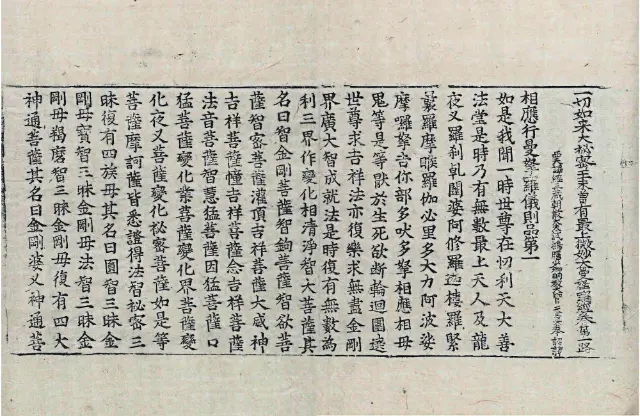 一切如來大秘密王未曾有最上微妙大曼拏羅經卷第一 路
相應行曼拏羅儀則品第一
如是我聞一時世尊在忉利天大善
法堂是時乃有無數最上天人及龍
夜叉羅刹乹闥婆阿修羅迦樓羅緊
曩羅摩睺羅伽必里多大力阿波娑
摩囉拏吉你部多吠多拏相應相母
鬼等是等猒於生死欲断輪迴圍遶
世尊求吉祥法亦復樂求無盡金剛
界廣大智成就法是時復有無數為
利三界作變化相清淨智大菩薩其
名曰智金剛菩薩智鉤菩薩智欲菩
薩智密菩薩灌頂吉祥菩薩大威神
吉祥菩薩幢吉祥菩薩念吉祥菩薩
法音菩薩智慧猛菩薩因猛菩薩口
猛菩薩變化業菩薩變化界菩薩變
化夜叉菩薩變化秘密菩薩如是等
菩薩摩訶薩皆悉證得法智秘密三
昧復有四族母其名曰圓智三昧金
剛母寶智三昧金剛母法智三昧金
剛母羯磨智三昧金剛母復有四大
神通菩薩其名曰金剛婆叉神通菩